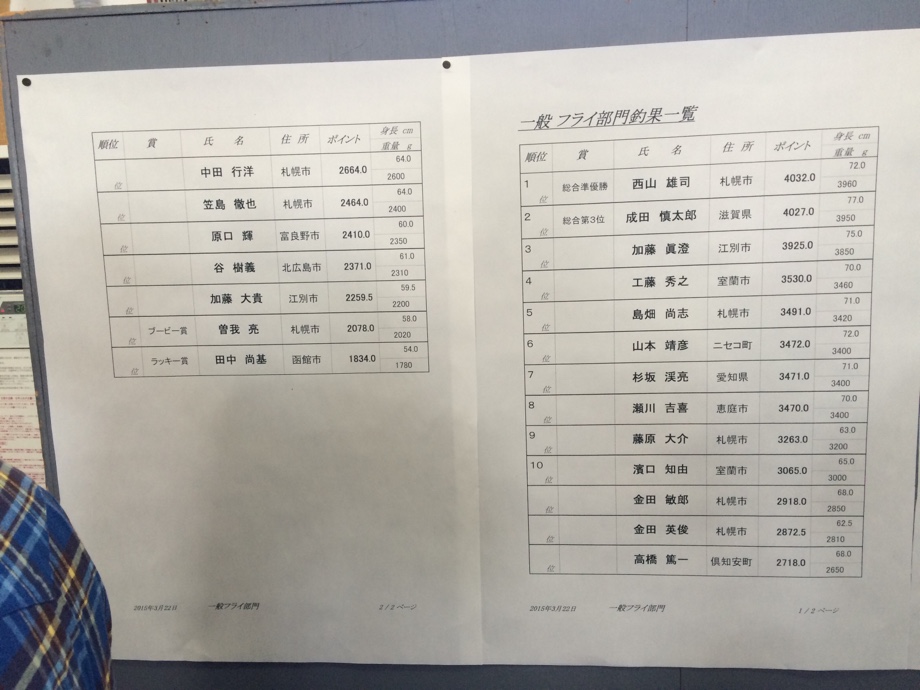 順位 賞 氏 名 住 所 ポイント 身長 cm
重量 g
位 中田 行洋 札幌市 2664.0 64.0
2600
位 笠島 徹也 札幌市 2464.0 64.0
2400
位 原口 輝 富良野市 2410.0 60.0
2350
位 谷 樹義 北広島市 2371.0 61.0
2310
位 加藤 大貴 江別市 2259.5 59.5
2200
位 ブービー賞 曽我 亮 札幌市 2078.0 58.0
2020
位 ラッキー賞 田中 尚基 函館市 1834.0 54.0
1780
2015年3月22日 一般フライ部門 2 / 2 ページ
一般 フライ部門釣果一覧
順位 賞 氏 名 住 所 ポイント 身長 cm
重量 g
1 位 総合準優勝 西山 雄司 札幌市 4032.0 72.0
3960
2 位 総合第3位 成田 慎太郎 滋賀県 4027.0 77.0
3950
3 位 加藤 眞澄 江別市 3925.0 75.0
3850
4 位 工藤 秀之 室蘭市 3530.0 70.0
3460
5 位 島畑 尚志 札幌市 3491.0 71.0
3420
6 位 山本 靖彦 ニセコ町 3472.0 72.0
3400
7 位 杉坂 渓亮 愛知県 3471.0 71.0
3400
8 位 瀬川 吉喜 恵庭市 3470.0 70.0
3400
9 位 藤原 大介 札幌市 3263.0 63.0
3200
10 位 濱口 知由 室蘭市 3065.0 65.0
3000
位 金田 敏郎 札幌市 2918.0 68.0
2850
位 金田 英俊 札幌市 2872.5 62.5
2810
位 高橋 篤一 倶知安町 2718.0 68.0
2650
2015年3月22日 一般フライ部門 1 / 2 ページ